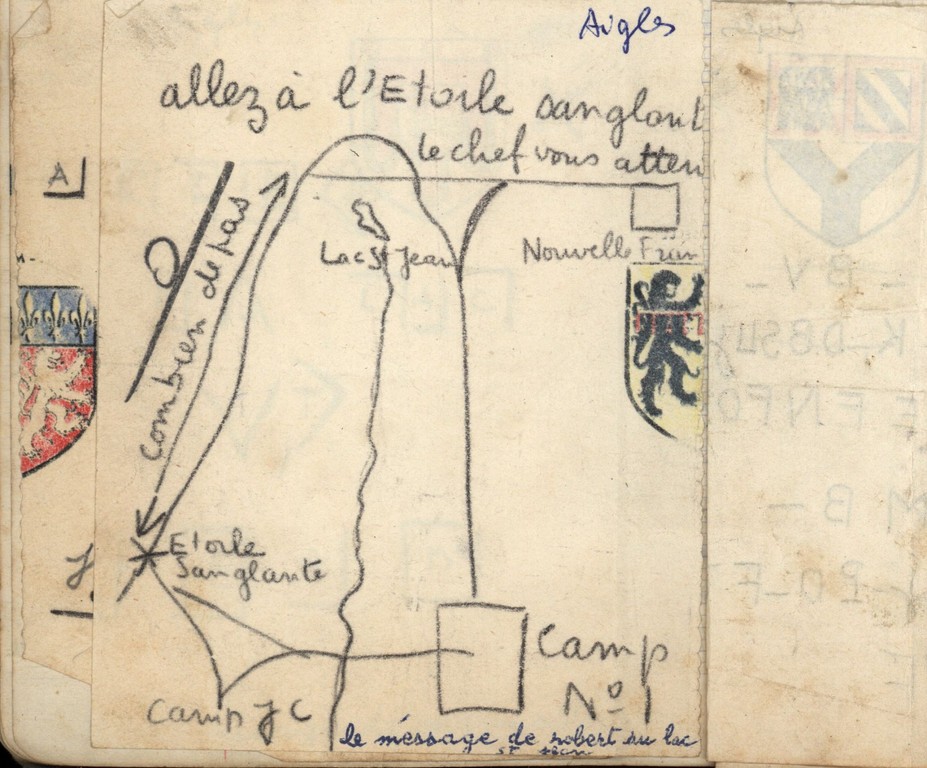 Aigles
allez à l'Etoile sanglant
le chef vous atten
A
combien de pas
Lac St Jean
Nouvelle Fran
Etoile
Sanglante
Camp JC
Camp
Nº 1
le méssage de robert au lac
st jean